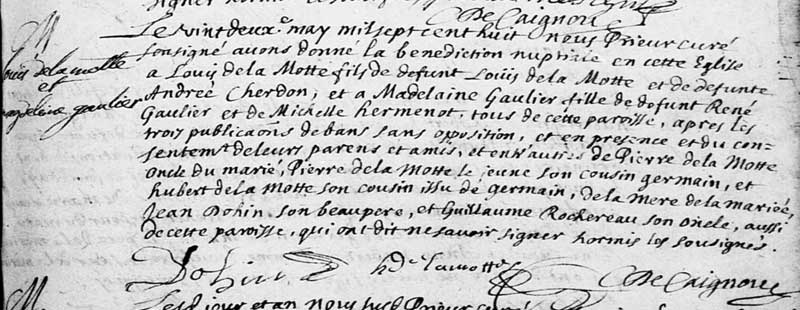 DeCaignou
M
Louis delamotte
et
magdelaine gaulier
Le vint deuxe. may mil sept cent huit nous Prieur curé
soussigné avons donne la benediction nuptiale en cette Eglise
a Louis dela Motte fils de defunt Louis dela Motte et de defunte
Andree Cherdon, et a Madelaine Gaulier fille de defunt René
Gaulier et de Michelle hermenot, tous de cette paroisse, apres les
trois publicaons de bans sans opposition, et en presence et du con-
sentemt. de leurs parens et amis, et entr'autres de Pierre dela Motte
oncle du marié, Pierre dela Motte le jeune son cousin germain, et
hubert dela Motte son cousin issu de germain, de la Mere dela mariée,
Jean Dohin son beaupere, et Guillaume Rochereau son oncle, aussi
de cette paroisse, qui ont dit ne savoir signer hormis les sousignés.
Dohin h de lamotte DeCaignou
M
Lesd. jour et an nous susd. Prieur curé